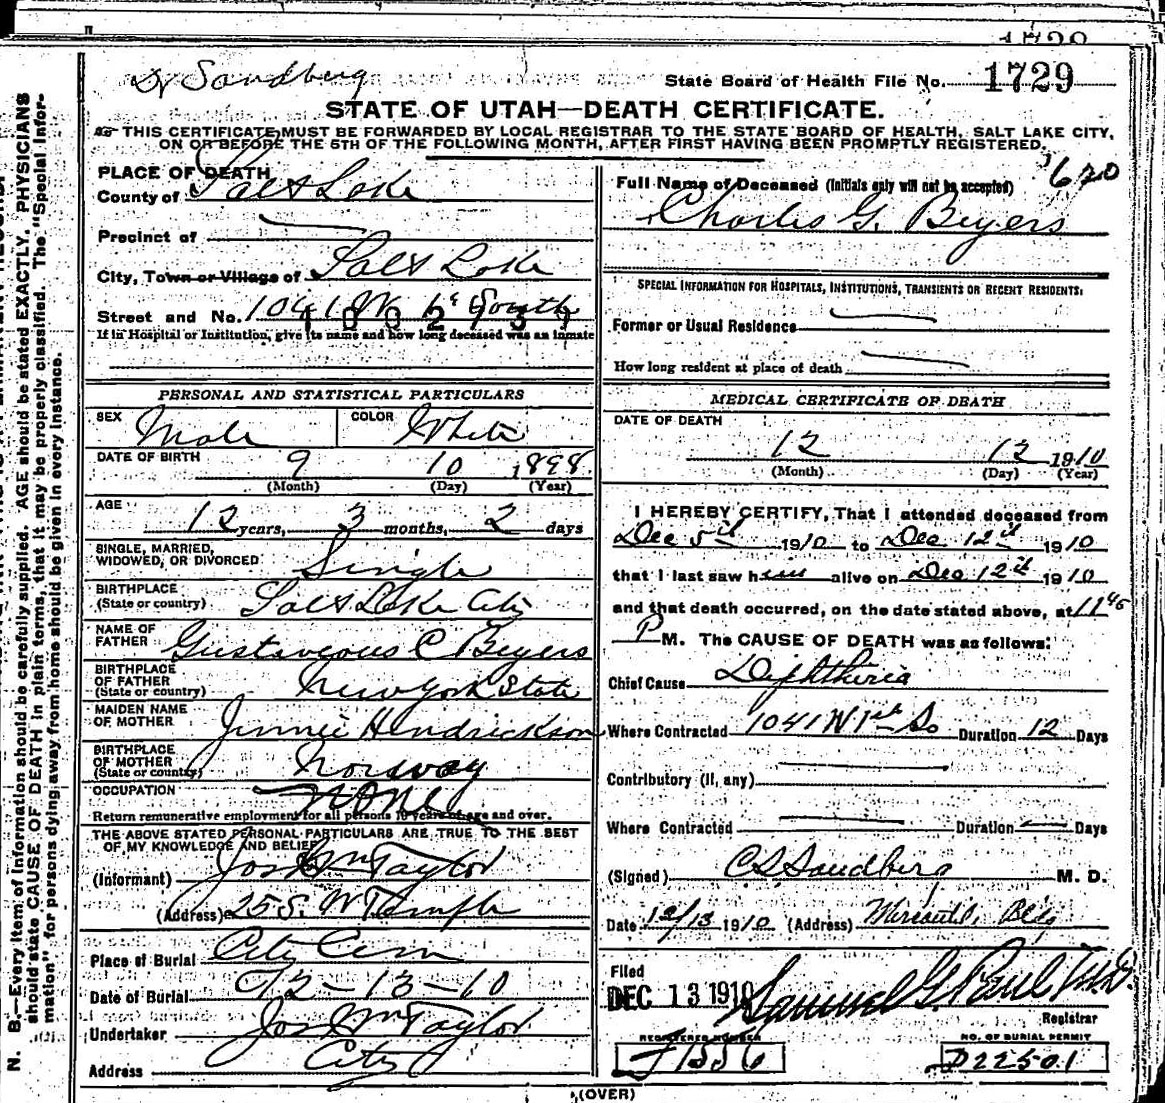 1729
Dr Sandberg
State Board of Health File No. 1729
STATE OF UTAH—DEATH CERTIFICATE.
THIS CERTIFICATE MUST BE FORWARDED BY LOCAL REGISTRAR TO THE STATE BOARD OF HEALTH, SALT LAKE CITY,
ON OR BEFORE THE 5TH OF THE FOLLOWING MONTH, AFTER FIRST HAVING BEEN PROMPTLY REGISTERED.
PLACE OF DEATH
County of Salt Lake
Precinct of
City, Town or Village of Salt Lake
Street and No. 1041 W 1st South
If in Hospital or Institution, give its name and how long deceased was an inmate
PERSONAL AND STATISTICAL PARTICULARS
SEX Male COLOR White
DATE OF BIRTH 9 10 1898
(Month) (Day) (Year)
AGE
12 years, 3 months, 2 days
SINGLE, MARRIED,
WIDOWED, OR DIVORCED Single
BIRTHPLACE
(State or country) Salt Lake City
NAME OF
FATHER Gustaveous C Beyers
BIRTHPLACE
OF FATHER
(State or country) New York State
MAIDEN NAME
OF MOTHER Jinnie Hendrickson
BIRTHPLACE
OF MOTHER
(State or country) Norway
OCCUPATION None
Return remunerative employment for all persons 10 years of age and over.
THE ABOVE STATED PERSONAL PARTICULARS ARE TRUE TO THE BEST
OF MY KNOWLEDGE AND BELIEF
(Informant) Jos Wm Taylor
(Address) 25 S. W Temple
Place of Burial City Cem
Date of Burial 12-13-10
Undertaker Jos Wm Taylor
Address City
620
Full Name of Deceased (Initials only will not be accepted)
Charles G. Beyers
SPECIAL INFORMATION FOR HOSPITALS, INSTITUTIONS, TRANSIENTS OR RECENT RESIDENTS:
Former or Usual Residence
How long resident at place of death
MEDICAL CERTIFICATE OF DEATH
DATE OF DEATH
12 12 1910
(Month) (Day) (Year)
I HEREBY CERTIFY, That I attended deceased from
Dec 5th 1910 to Dec 12th 1910
that I last saw him alive on Dec 12th 1910
and that death occurred, on the date stated above, at 11 45
P M. The CAUSE OF DEATH was as follows:
Chief Cause Diphtheria
Where Contracted 1041 W 1st So Duration 12 Days
Contributory (if, any)
Where Contracted Duration Days
(Signed) C L Sandberg M. D.
Date 12/13 1910 (Address) Mercantile Bldg
Filed
DEC 13 1910 Samuel G. Paul M.D.
Registrar
REGISTERED NUMBER
J 1556
NO. OF BURIAL PERMIT
D22501
(OVER)
N. B.—Every item of information should be carefully supplied. AGE should be stated EXACTLY. PHYSICIANS
should state CAUSE OF DEATH in plain terms, that it may be properly classified. The "Special Infor-
mation" for persons dying away from home should be given in every instance.